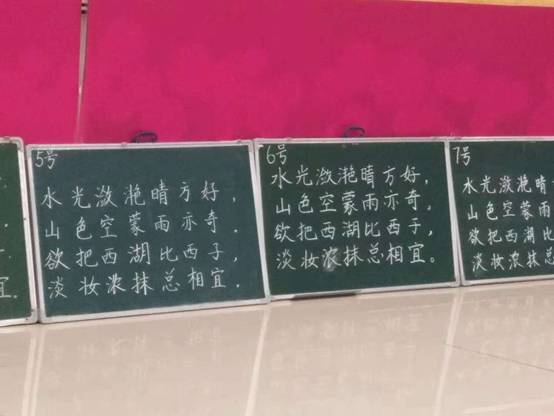 宜.
5号
水光潋滟晴方好,
山色空蒙雨亦奇.
欲把西湖比西子,
淡妆浓抹总相宜.
6号
水光潋滟晴方好,
山色空蒙雨亦奇,
欲把西湖比西子,
淡妆浓抹总相宜。
7号
水光潋滟晴
山色空蒙雨
欲把西湖比
淡妆浓抹总